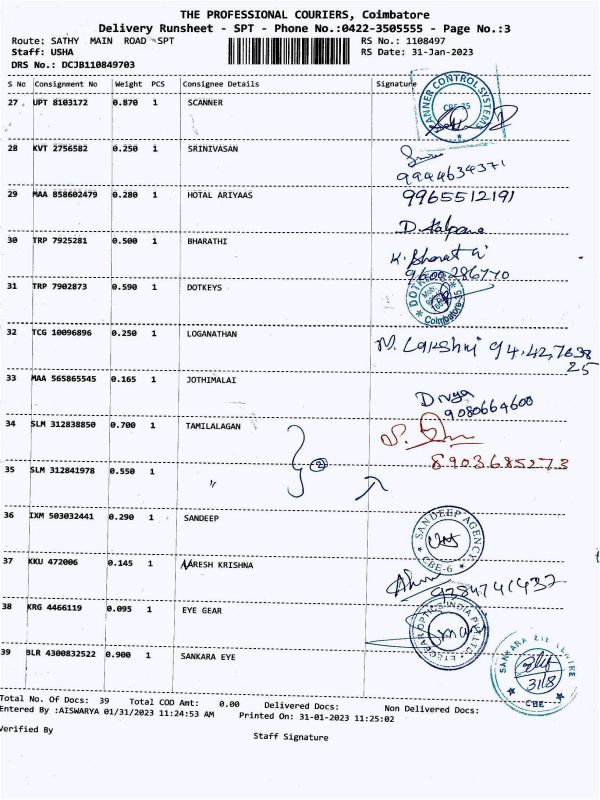 THE PROFESSIONAL COURIERS, Coimbatore
Delivery Runsheet - SPT - Phone No.:0422-3505555 - Page No.:3
Route: SATHY MAIN ROAD SPT RS No.: 1108497
Staff: USHA RS Date: 31-Jan-2023
DRS No.: DCJB110849703
S No Consignment No Weight PCS Consignee Details Signature
27 UPT 8103172 0.870 1 SCANNER SCANNER CONTROL SYSTEMS CBE-35
28 KVT 2756582 0.250 1 SRINIVASAN
9944634371
29 MAA 858602479 0.280 1 HOTAL ARIYAAS 9965512191
D. Kalpana
30 TRP 7925281 0.500 1 BHARATHI K. Bharathi
9600286770
31 TRP 7902873 0.590 1 DOTKEYS Coimbatore
32 TCG 10096896 0.250 1 LOGANATHAN M. Lakshmi 94,42,7638
25
33 MAA 565865545 0.165 1 JOTHIMALAI Divya
9080664600
34 SLM 312838850 0.700 1 TAMILALAGAN
8903685273
35 SLM 312841978 0.550 1 " 2
36 IXM 503032441 0.290 1 SANDEEP SANDEEP AGENCY CBE-6
37 KKU 472006 0.145 1 NARESH KRISHNA
9384741432
38 KRG 4466119 0.095 1 EYE GEAR EYEGEAR OPTICS INDIA
39 BLR 4300832522 0.900 1 SANKARA EYE SANKARA EYE CENTRE CBE
3118
Total No. Of Docs: 39 Total COD Amt: 0.00 Delivered Docs: Non Delivered Docs:
Entered By :AISWARYA 01/31/2023 11:24:53 AM Printed On: 31-01-2023 11:25:02
Verified By Staff Signature